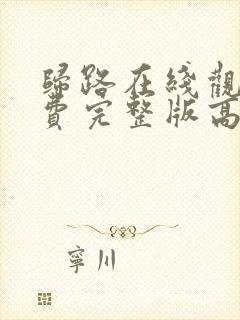 歸路在綫觀
費完整版高
寧川